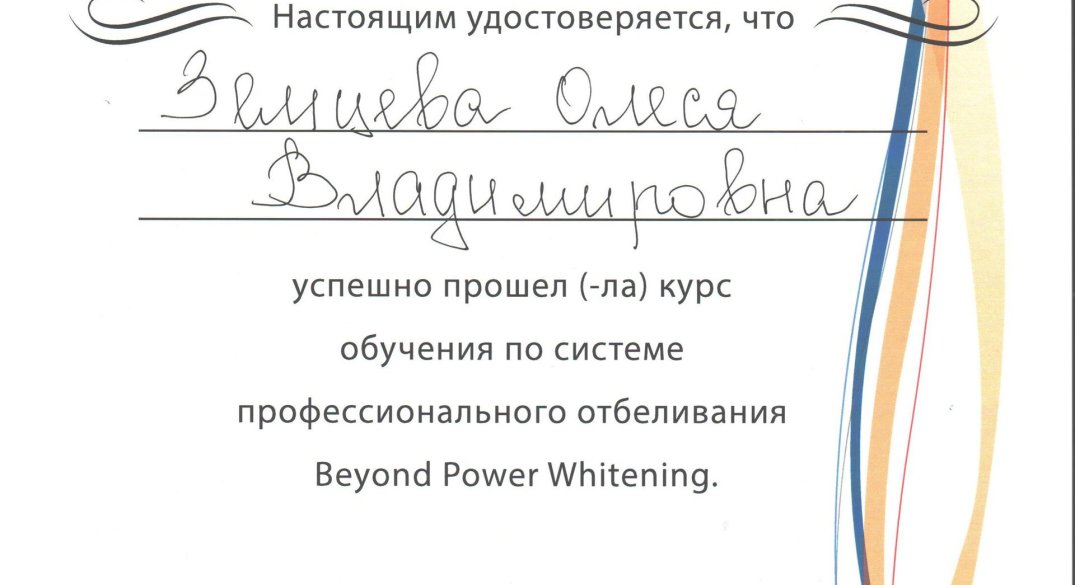 Настоящим удостоверяется, что
Земцева Олеся
Владимировна
успешно прошел (-ла) курс
обучения по системе
профессионального отбеливания
Beyond Power Whitening.